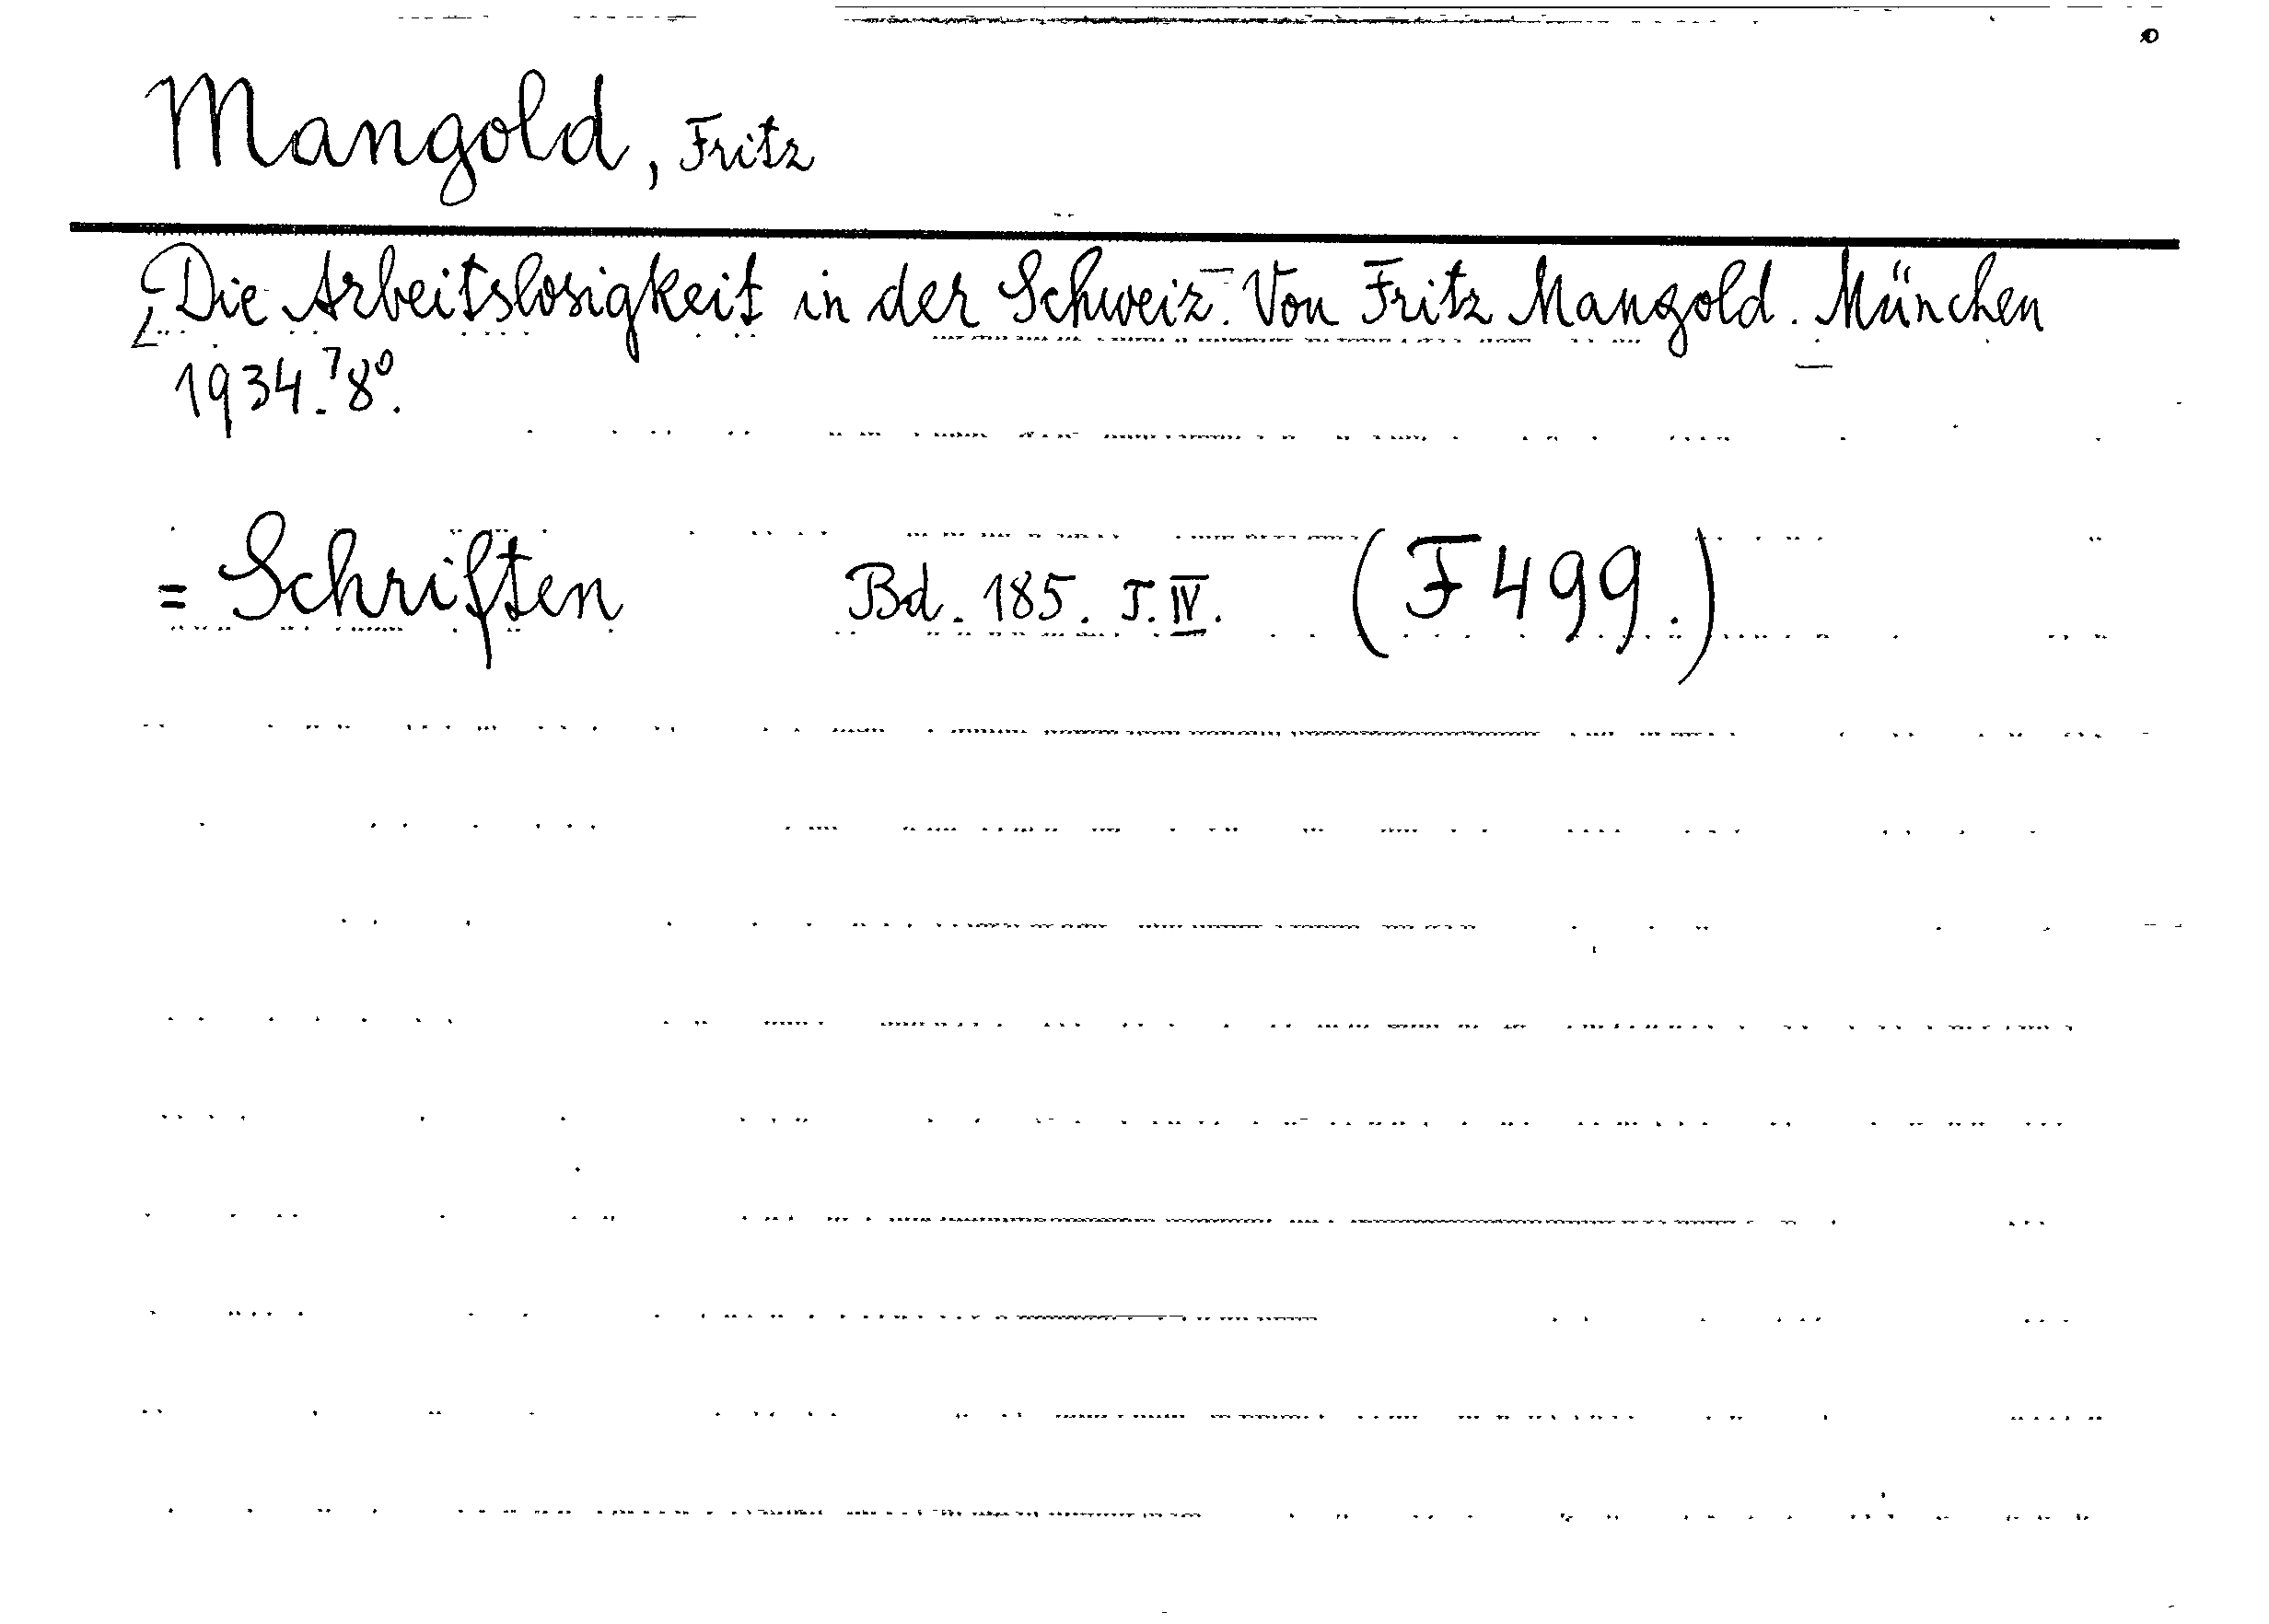 Mangold, Fritz
[Die Arbeitslosigkeit in der Schweiz. Von Fritz Mangold. München
1934.] 8°.
= Schriften Bd. 185. T. IV. (F 499.)